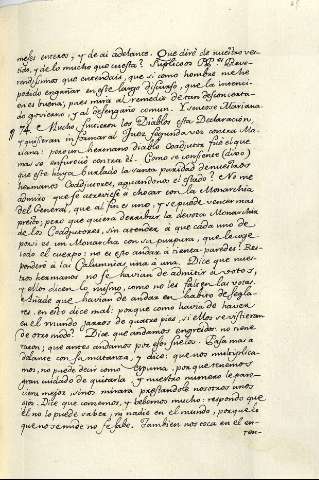 meses enteros, y de ai adelante. Que diré de nuestro ves-
tido, y de lo mucho que cuesta? Suplico os PP.es Reve-
rendissimos que entendais, que si como hombre me he
podido engañar en este largo discurso, que la intenci-
on es buena, pues mira al remedio de tan desconcerta-
do govierno, y al desengaño comun. Y vense Mariana.
74 Mucho sintieron los Diablos esta Declaración,
y quisieran informar al Juez segunda vez contra Ma-
riana: pero un hermano diablo Coadjutor fue el que
mas se enfureció contra él. Como se consiente (dixo)
que este haya burlado la santa puridad de nuestros
hermanos Coadjutores, aguandonos el estado? No me
admiro que se atreviese a chocar con la Monarchia
del General, que al fin es uno, y se puede vencer mas
presto; pero que quiera derribar la devota Monarchia
de los Coadjutores, sin atender à que cada uno de
por si es un Monarcha con su purpura, que le coge
todo el cuerpo: no es esto andar à tienta paredes? Res-
ponderé à las Calumnias una à una. Dice que nues-
tros hermanos no se havian de admitir a votos,
y ellos dicen lo mismo, como no les falten las votas.
Añade que havian de andar en habito de segla-
res. en esto dice mal: porque como havia de haver
en el mundo paxes de quatro pies, si ellos se vistieran
de otro modo? Dice que andamos engreidos: no tiene
razon; que antes andamos por esos suelos. Pasa mas a
delante con su matanza, y dice: que nos multiplica-
mos, no puede decir como espuma, porque tenemos
gran cuidado de quitarla, y nuestro numero le pare-
ciera mejor, si nos mirara prestandole nosotros unos
ojos. Dice que comemos, y bebemos mucho: respondo que
él no lo puede saber, ni nadie en el mundo, porque lo
que no se mide no se sabe. Tambien nos toca en el en-
ten-